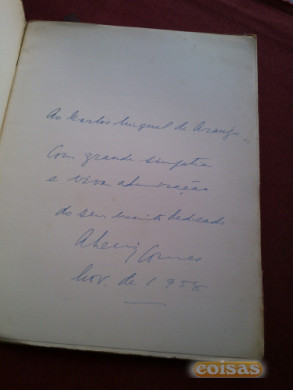 Ao Carlos Miguel de Araujo,
Com grande simpatia
e viva admiração
do seu muito dedicado
Gomes
Nov. de 1958
coisas